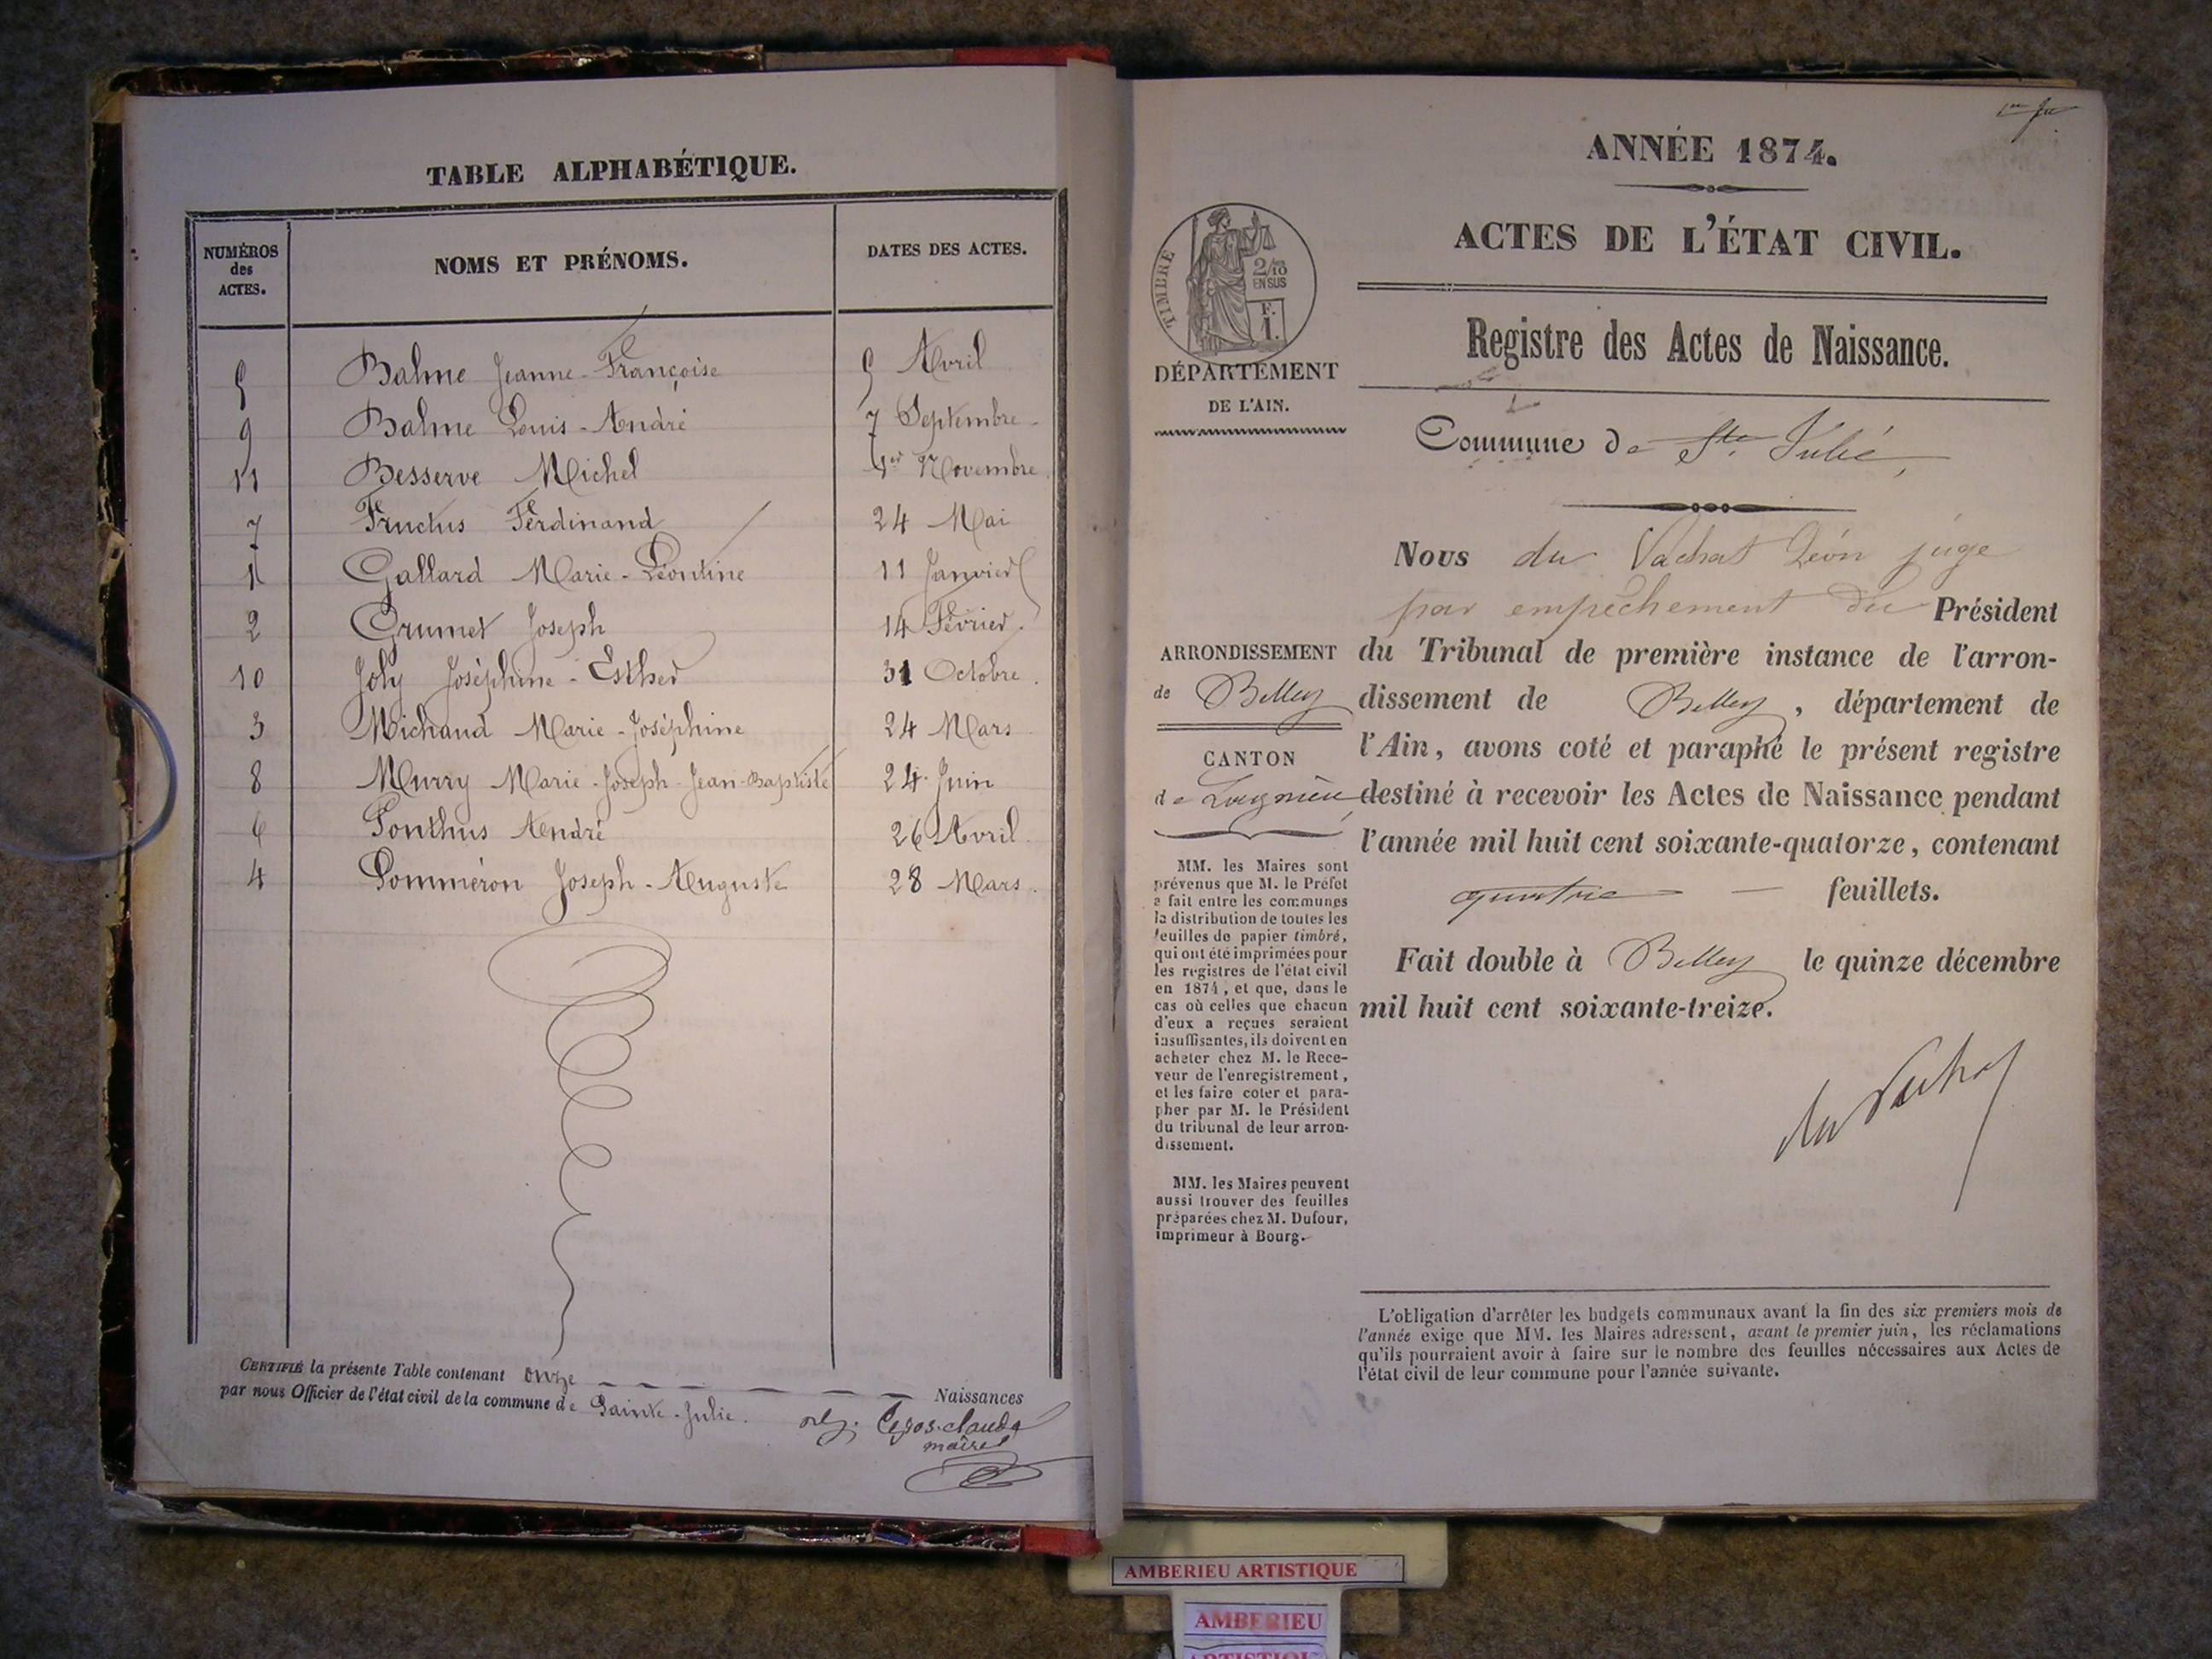 TABLE ALPHABÉTIQUE.
NUMÉROS des ACTES. NOMS ET PRÉNOMS. DATES DES ACTES.
5 Balme Jeanne-Françoise 5 Avril
9 Balme Louis-André 7 Septembre
11 Besserve Michel 1er Novembre
7 Fructus Ferdinand 24 Mai
1 Gallard Marie-Léontine 11 Janvier
2 Grumet Joseph 14 Février.
10 Joly Joséphine-Esther 31 Octobre.
3 Michaud Marie-Joséphine 24 Mars
8 Murry Marie-Joseph-Jean-Baptiste 24 Juin
6 Ponthus André 26 Avril
4 Pommeron Joseph-Auguste 28 Mars.
CERTIFIÉ la présente Table contenant onze Naissances
par nous Officier de l'état civil de la commune de Sainte-Julie.
claude
maire
ANNÉE 1874.
ACTES DE L'ÉTAT CIVIL.
Registre des Actes de Naissance.
TIMBRE
2/10
EN SUS
F.
1.
DÉPARTEMENT
DE L'AIN.
Commune de Ste Julie,
Nous du Vachat Léon juge
par empêchement du Président
du Tribunal de première instance de l'arron-
dissement de Belley, département de
l'Ain, avons coté et paraphé le présent registre
destiné à recevoir les Actes de Naissance pendant
l'année mil huit cent soixante-quatorze, contenant
quatre feuillets.
Fait double à Belley le quinze décembre
mil huit cent soixante-treize.
du Vachat
ARRONDISSEMENT
de Belley
CANTON
de Lagnieu
MM. les Maires sont
prévenus que M. le Préfet
a fait entre les communes
la distribution de toutes les
feuilles de papier timbré,
qui ont été imprimées pour
les registres de l'état civil
en 1874, et que, dans le
cas où celles que chacun
d'eux a reçues seraient
insuffisantes, ils doivent en
acheter chez M. le Rece-
veur de l'enregistrement,
et les faire coter et para-
pher par M. le Président
du tribunal de leur arron-
dissement.
MM. les Maires peuvent
aussi trouver des feuilles
préparées chez M. Dufour,
imprimeur à Bourg.
L'obligation d'arrêter les budgets communaux avant la fin des six premiers mois de
l'année exige que MM. les Maires adressent, avant le premier juin, les réclamations
qu'ils pourraient avoir à faire sur le nombre des feuilles nécessaires aux Actes de
l'état civil de leur commune pour l'année suivante.
AMBERIEU ARTISTIQUE
AMBERIEU
ARTISTIQUE